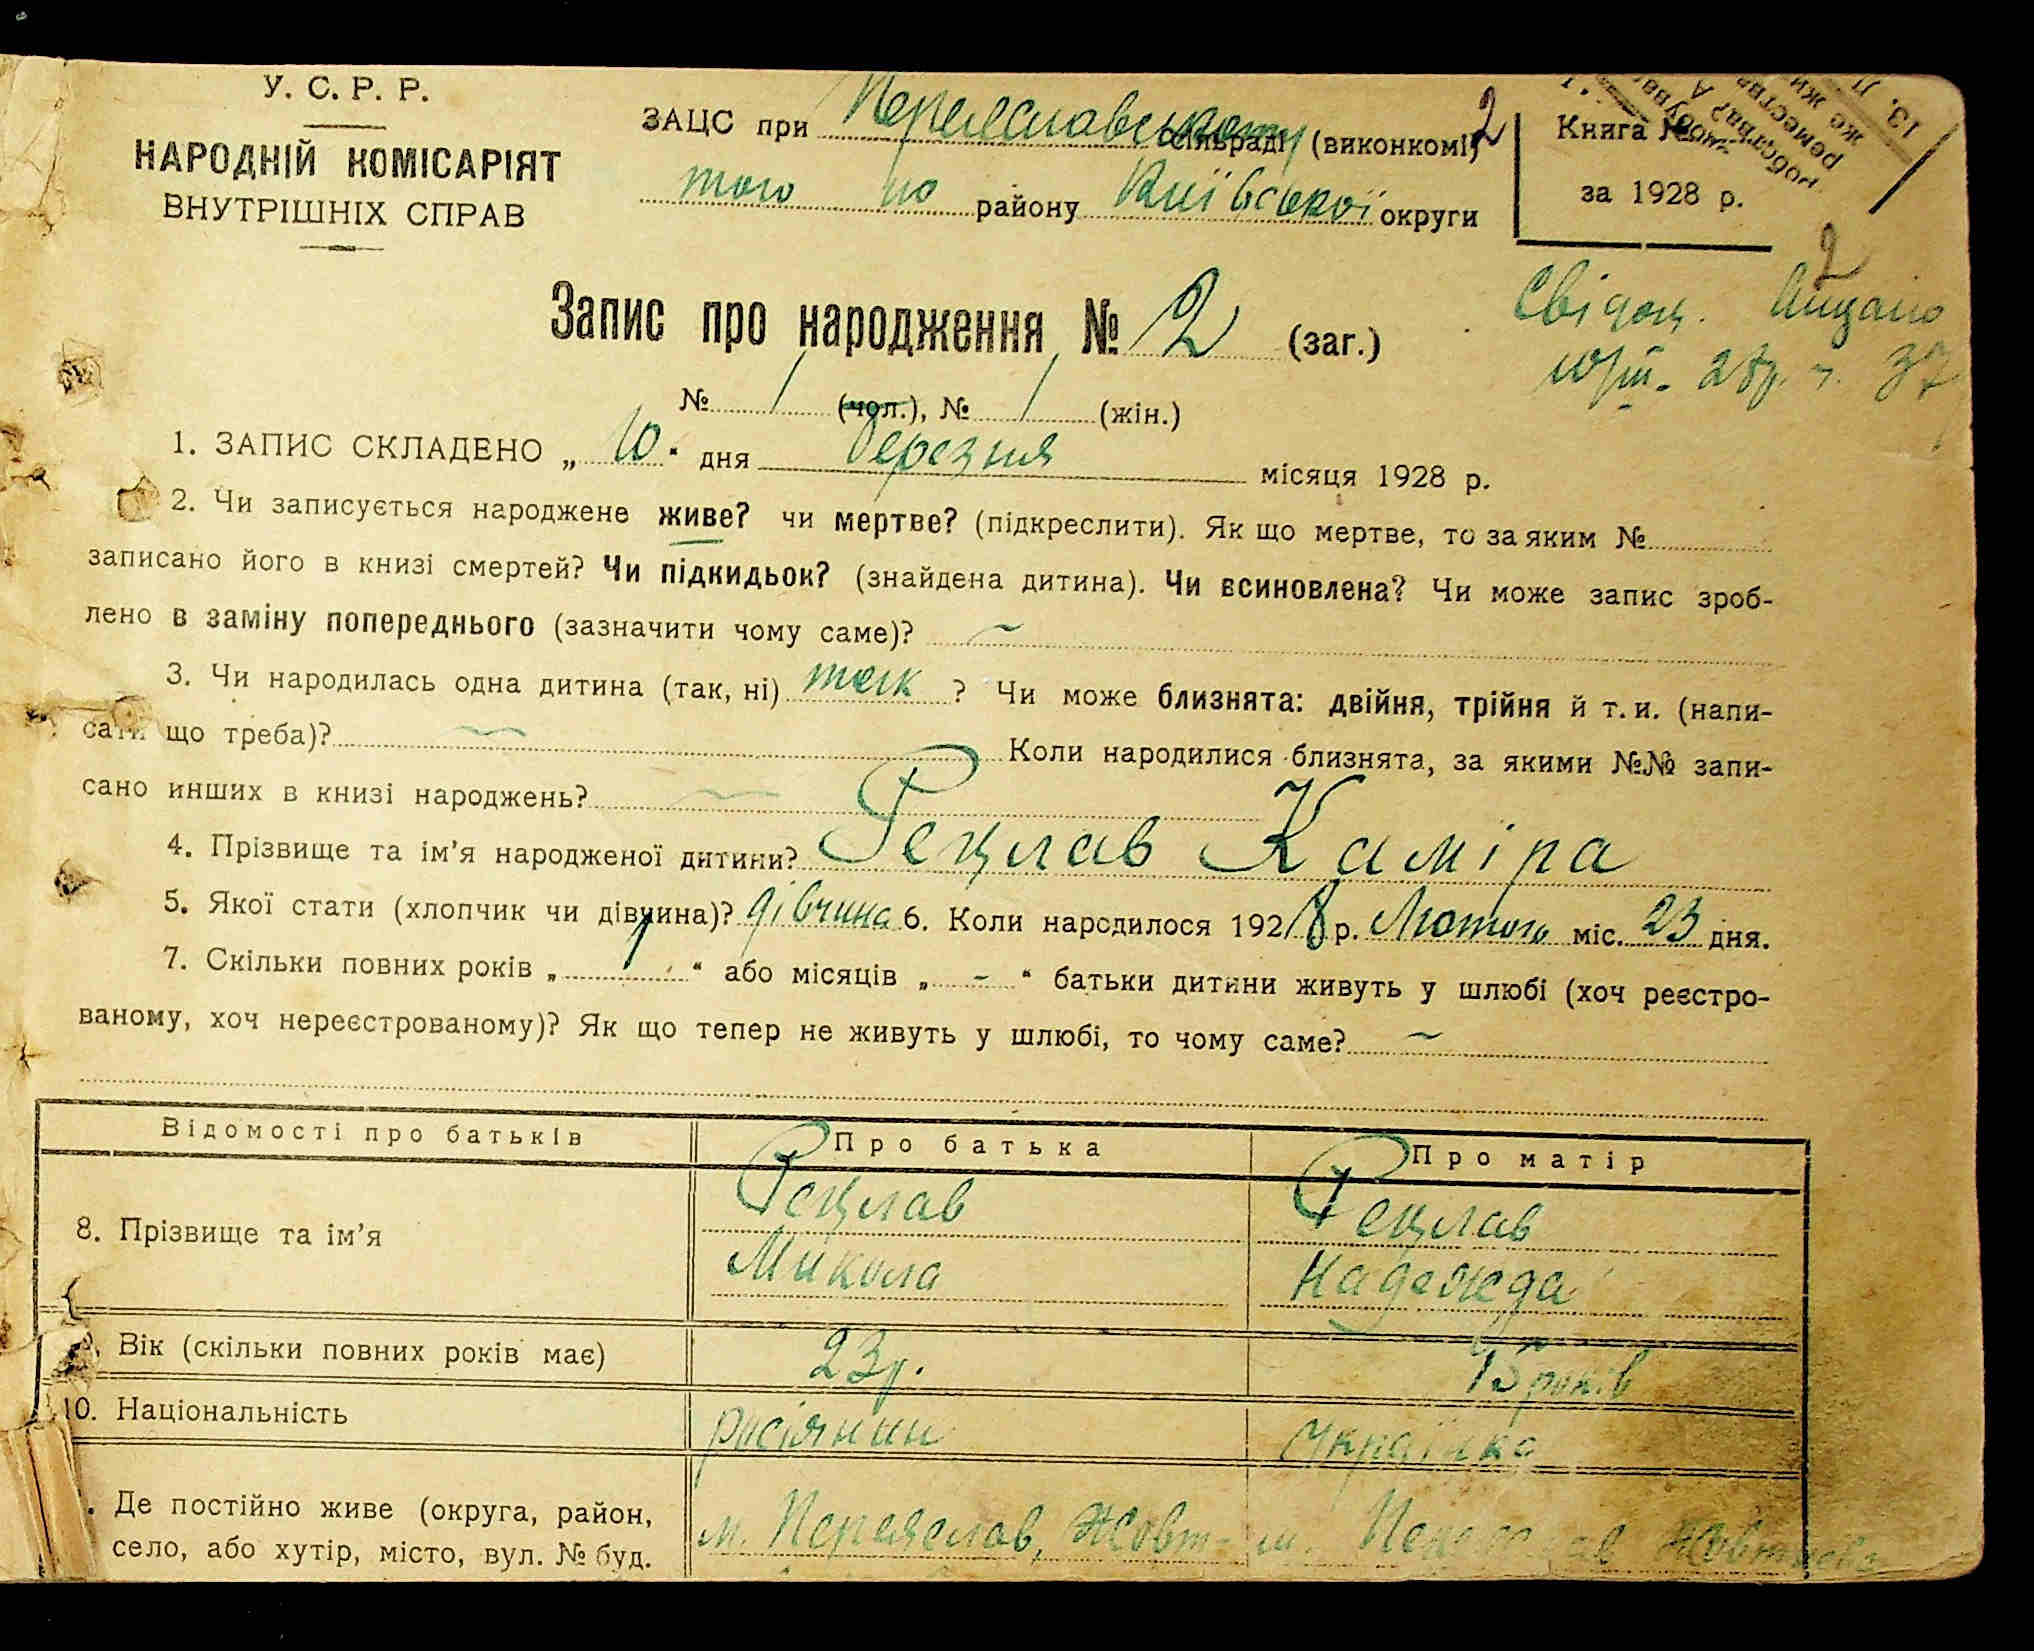 У. С. Р. Р.
НАРОДНІЙ КОМІСАРІЯТ
ВНУТРІШНІХ СПРАВ
ЗАЦС при Переяславському сільраді (виконкомі) 2
того но району Київської округи
Книга №
за 1928 р.
2
Свідоц.
28р. 37
Запис про народження № 2 (заг.)
№ / (чол.), № 1 (жін.)
1. ЗАПИС СКЛАДЕНО „ 10 “ дня березня місяця 1928 р.
2. Чи записується народжене живе? чи мертве? (підкреслити). Як що мертве, то за яким №
записано його в книзі смертей? Чи підкидьок? (знайдена дитина). Чи всиновлена? Чи може запис зроб-
лено в заміну попереднього (зазначити чому саме)? ~
3. Чи народилась одна дитина (так, ні) так ? Чи може близнята: двійня, трійня й т. и. (напи-
сати що треба)? ~ Коли народилися близнята, за якими №№ запи-
сано инших в книзі народжень? ~
4. Прізвище та ім’я народженої дитини? Рецлав Каміра
5. Якої стати (хлопчик чи дівчина)? дівчина 6. Коли народилося 1928 р. Лютого міс. 23 дня.
7. Скільки повних років „ 1 “ або місяців „ - “ батьки дитини живуть у шлюбі (хоч реєстро-
ваному, хоч нереєстрованому)? Як що тепер не живуть у шлюбі, то чому саме? ~
Відомості про батьків Про батька Про матір
8. Прізвище та ім’я Рецлав Микола Рецлав Надежда
9. Вік (скільки повних років має) 23р. років
10. Національність росіянин українка
Де постійно живе (округа, район, м. Переяслав, Жовт- м. Переяслав
село, або хутір, місто, вул. № буд.